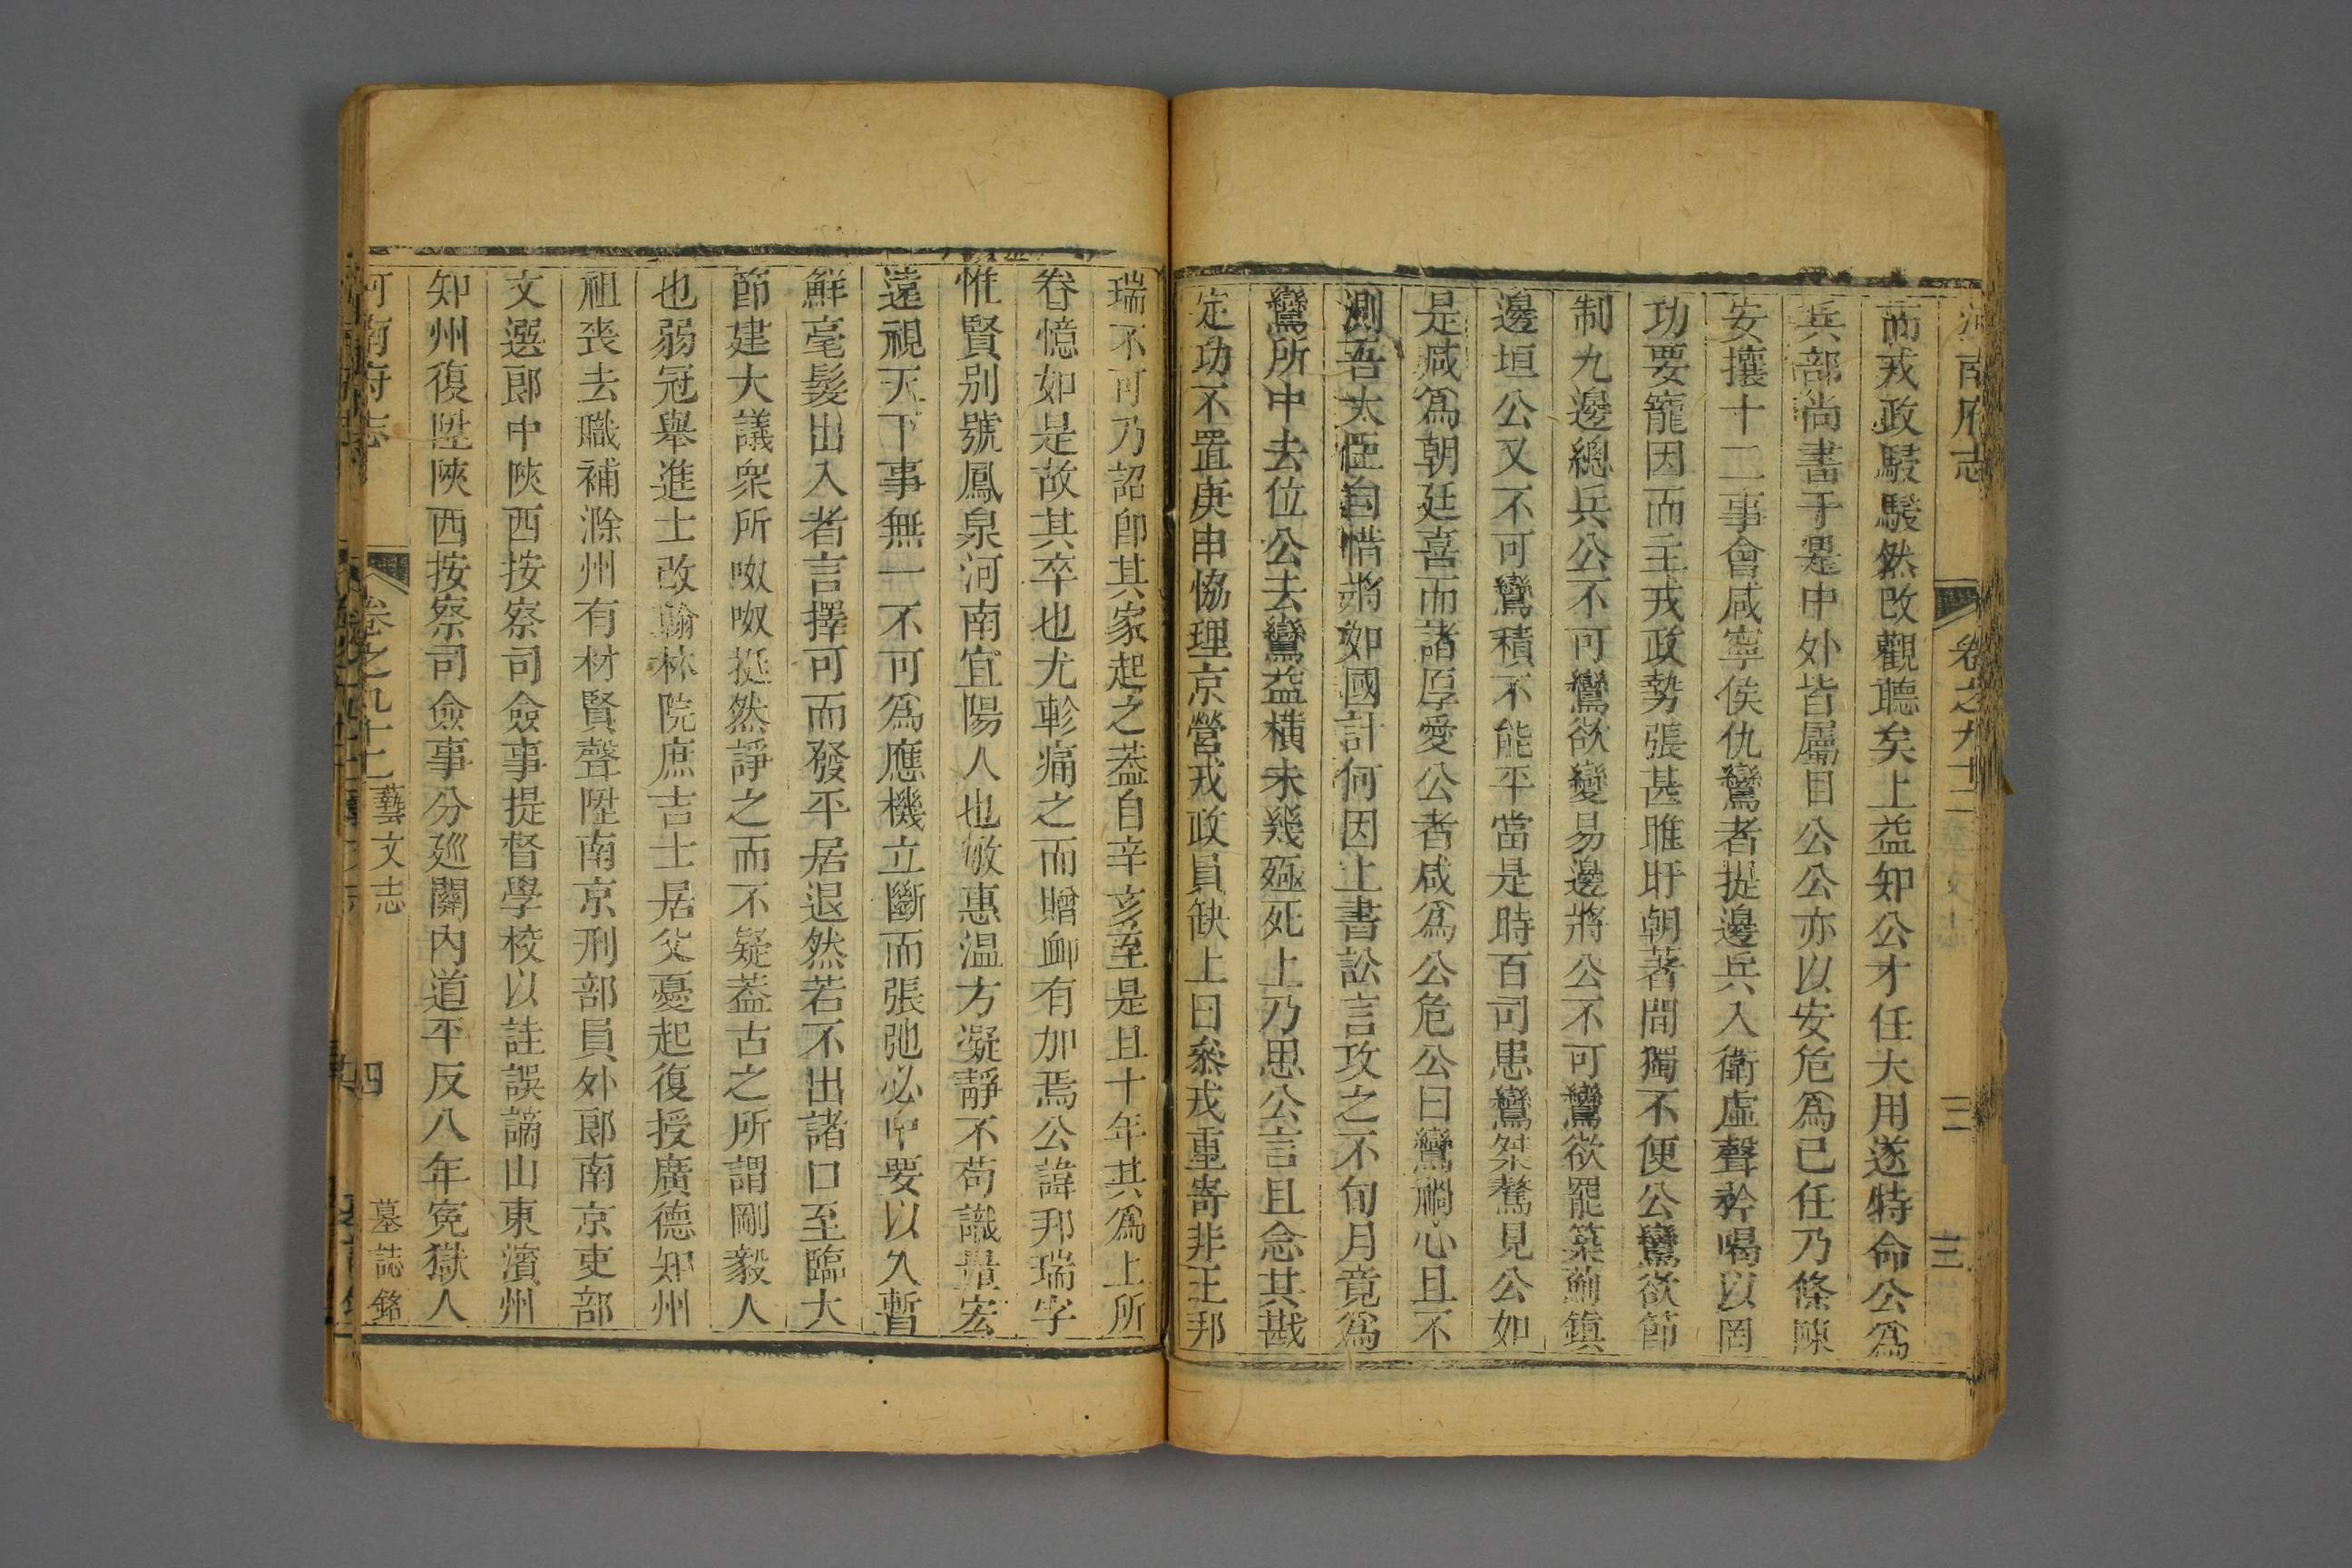 河南府志 卷之九十二 三
而戎政駸駸然改觀聽矣上益知公才任大用遂特命公爲
兵部尚書于是中外皆屬目公公亦以安危爲已任乃條陳
安攘十二事會咸寧侯仇鸞者提邊兵入衛虛聲矜喝以罔
功要寵因而主戎政勢張甚睢盱朝著間獨不便公鸞欲節
制九邊總兵公不可鸞欲變易邊將公不可鸞欲罷築薊鎮
邊垣公又不可鸞積不能平當是時百司患鸞桀驁見公如
是咸爲朝廷喜而諸厚愛公者咸爲公危公曰鸞禍心且不
測吾大臣自惜將如國計何因上書訟言攻之不旬月竟爲
鸞所中去位公去鸞益橫未幾殛死上乃思公言且念其戡
定功不置庚申恊理京營戎政員缺上曰叅戎重寄非王邦
瑞不可乃詔卽其家起之葢自辛亥至是且十年其爲上所
眷憶如是故其卒也尤軫痛之而贈䘏有加焉公諱邦瑞字
惟賢别號鳳泉河南宜陽人也敏惠温方凝靜不苟識量宏
遠視天下事無一不可爲應機立斷而張弛必中要以久暫
鮮毫髮出入者言擇可而發平居退然若不出諸口至臨大
節建大議衆所呶呶挺然諍之而不疑葢古之所謂剛毅人
也弱冠舉進士改翰林院庶吉士居父憂起復授廣德知州
祖喪去職補滁州有材賢聲陞南京刑部員外郞南京吏部
文選郞中陝西按察司僉事提督學校以詿誤謫山東濱州
知州復陞陝西按察司僉事分廵關內道平反八年寃獄人
河南府志 卷之九十二 藝文志 四 墓誌銘